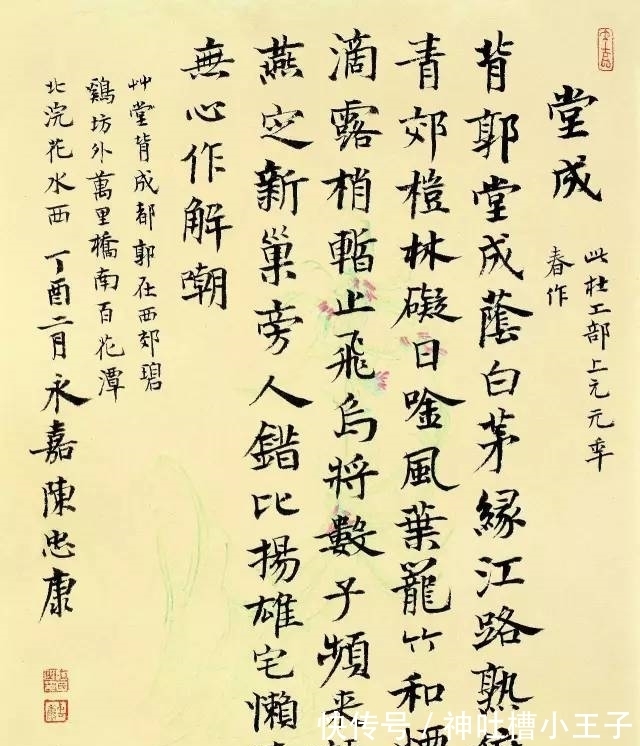 堂成
此杜工部上元元年
春作
背郭堂成蔭白茅緣江路熟
青郊榿林礙日唫風葉籠竹和煙
滴露梢暫止飛烏將數子頻來
燕定新巢旁人錯比揚雄宅懶
無心作解嘲
艸堂背成都郭在西郊碧
鷄坊外萬里橋南百花潭
北浣花水西 丁酉二月永嘉陳忠康
快传号 / 神吐槽小王子